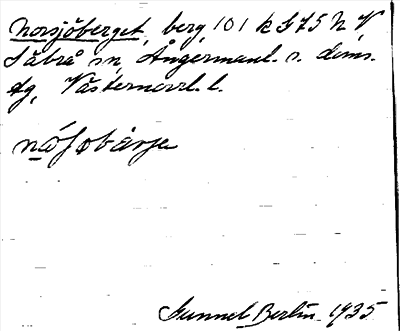 Norsjöberget, berg, 101 k G75 N, V
Säbrå sn, Ångermanl. s. doms.
dg, Västernorrl. l.
nå∫øbärjе
Gunnel Berlin 1935